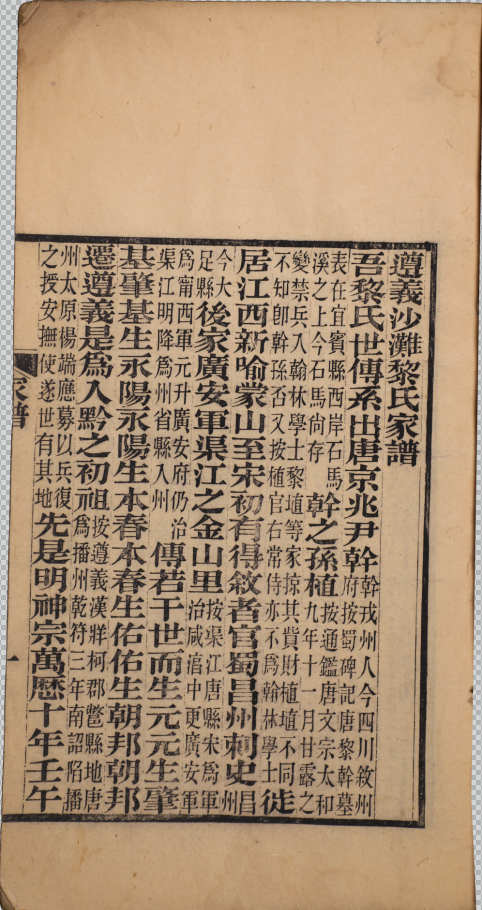 遵義沙灘黎氏家譜
吾黎氏世傳系出唐京兆尹幹幹戎州人今四川敘州府按蜀碑記唐黎幹墓
表在宜賓縣西岸石馬溪之上今石馬尚存幹之孫植按通鑑唐文宗太和九年十一月甘露之
變禁兵入翰林學士黎埴等家掠其貲財植埴不同不知卽幹孫否又按植官右常侍亦不爲翰林學士徙
居江西新喻蒙山至宋初有得敘者官蜀昌州刺史昌州
今大足縣後家廣安軍渠江之金山里按渠江唐縣宋爲軍治咸湻中更廣安軍
爲甯西軍元升廣安府仍治渠江明降爲州省縣入州傳若干世而生元元生肇
基肇基生永陽永陽生本春本春生佑佑生朝邦朝邦
遷遵義是爲入黔之初祖按遵義漢牂柯郡鷩縣地唐爲播州乾符三年南詔陷播
州太原楊端應募以兵復之授安撫使遂世有其地先是明神宗萬厯十年壬午
家譜
一